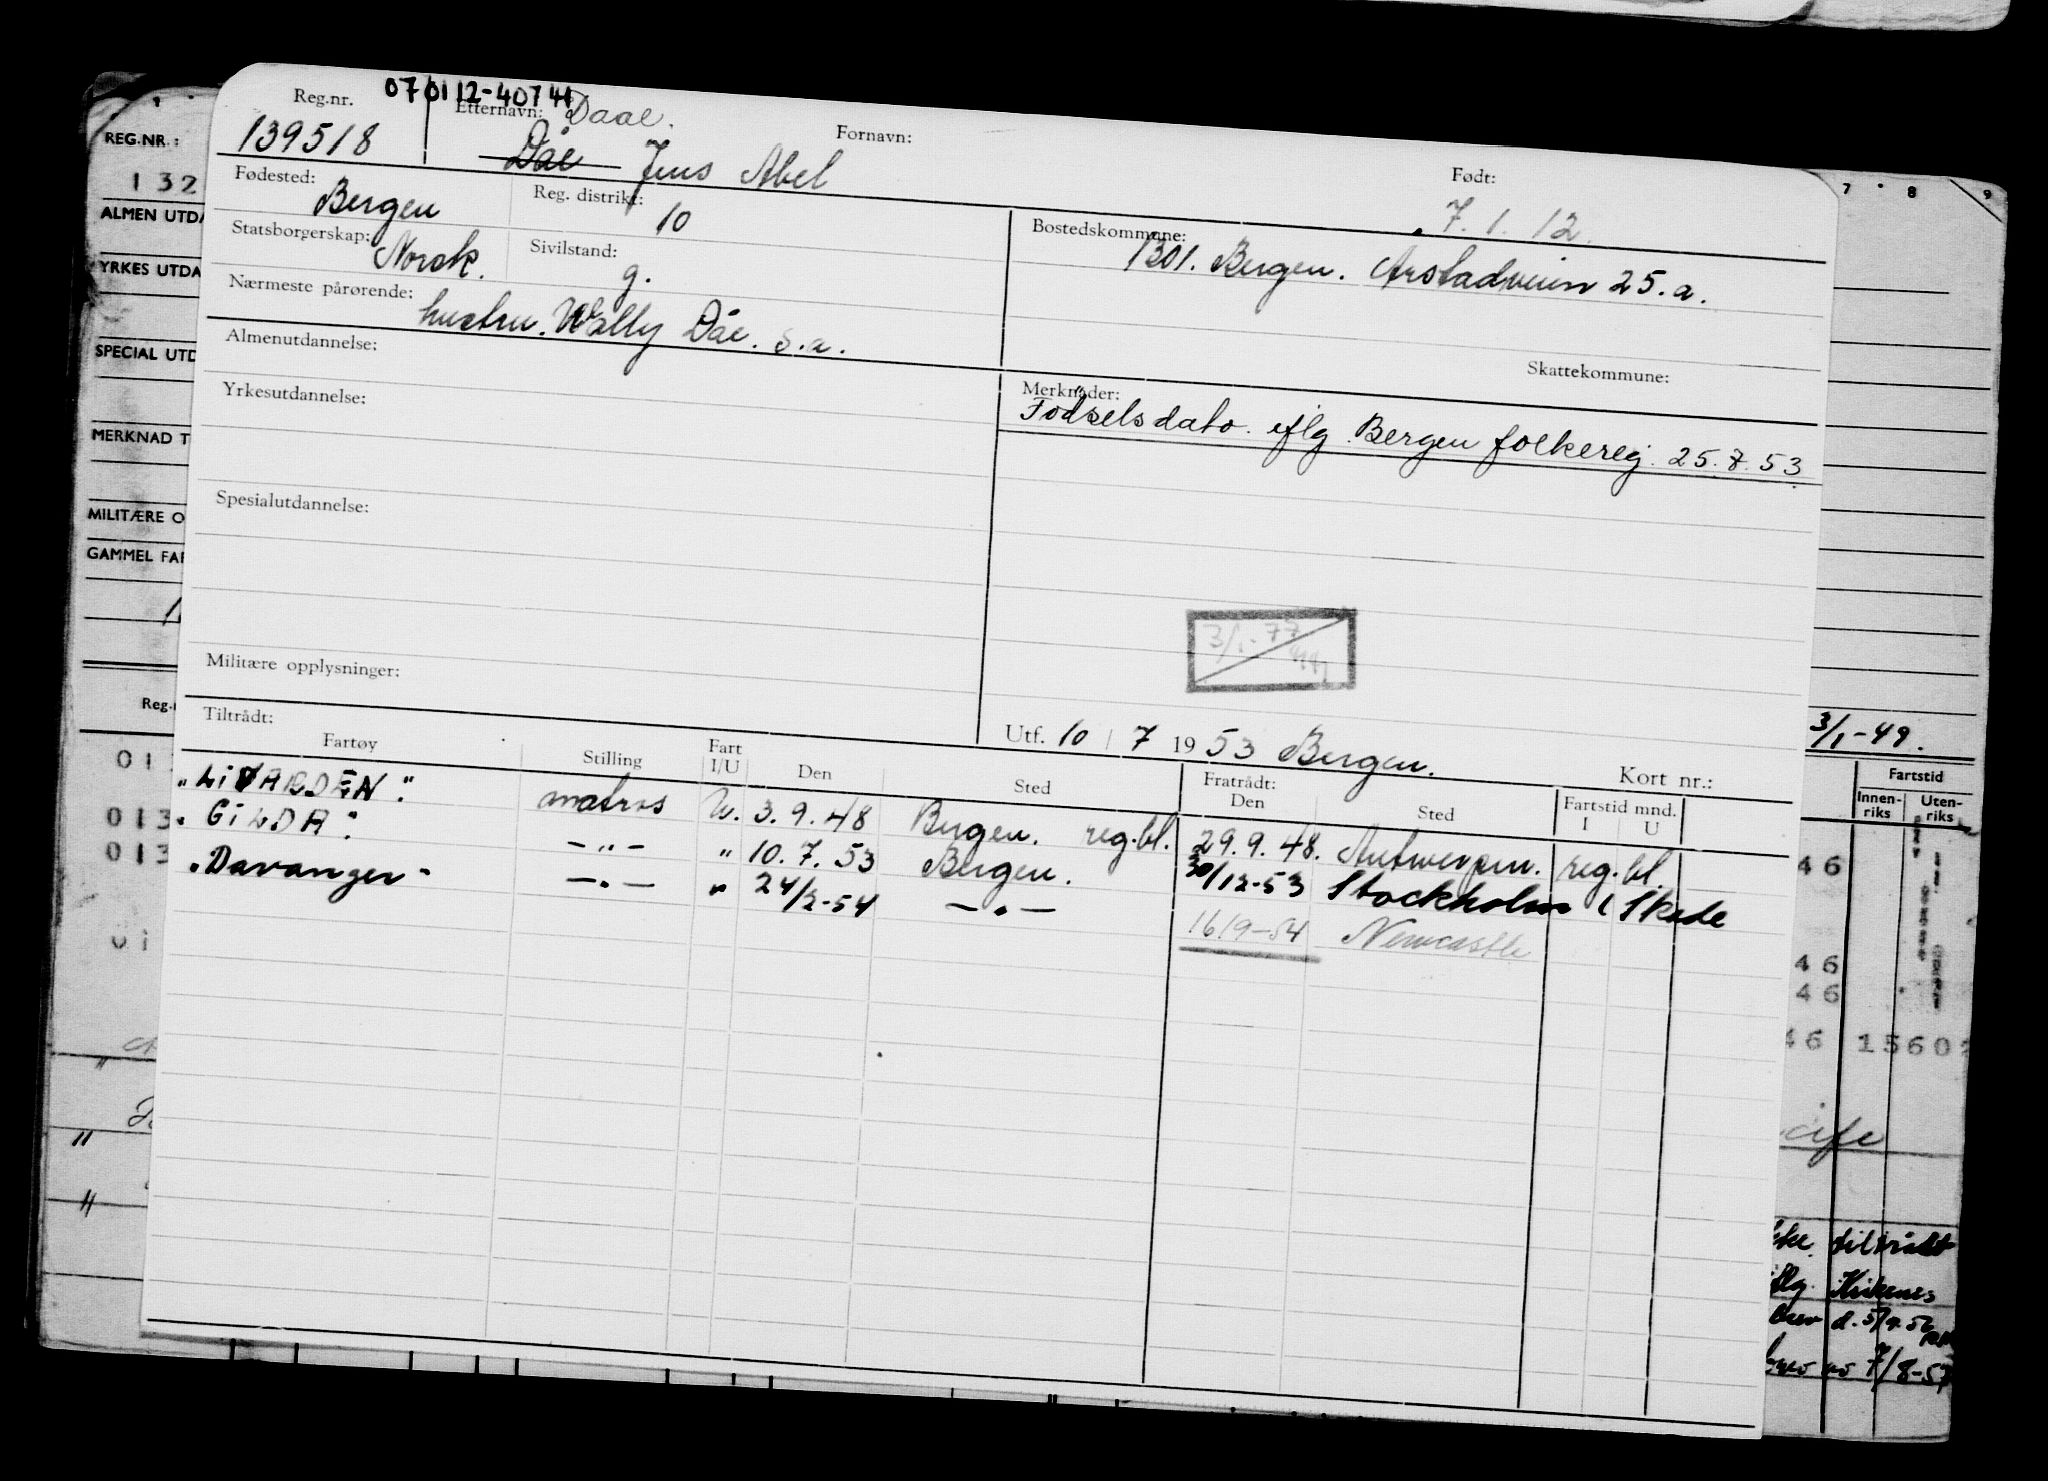 070112-40741
Reg.nr. Etternavn: Daae. Fornavn: Født:
139518 Dåe Jens Abel 7.1.12.
Fødested: Bergen Reg. distrikt: 10 Bostedskommune: 1301. Bergen. Årstadveien 25.a.
Statsborgerskap: Norsk. Sivilstand: g.
Nærmeste pårørende: hustru. Wally Dåe. s.a.
Skattekommune:
Almenutdannelse:
Merknader:
Fødselsdato. iflg. Bergen folkereg. 25.7.53
Yrkesutdannelse:
Spesialutdannelse:
3/1-77
Militære opplysninger:
Utf. 10 / 7 1953 Bergen. Kort nr.:
Tiltrådt: Fratrådt:
Fartøy Stilling Fart I/U Den Sted Den Sted Fartstid mnd. I U
"LiVARDEN". matros U. 3.9.48 Bergen. reg.bl. 29.9.48. Antwerpen. reg.bl.
"GiLDA". -„- " 10.7.53 Bergen. 30/12-53 Stockholm Skade
"Davanger" -„- " 24/2-54 -„- 16/9-54 Newcastle
REG.NR.:
132
ALMEN UTDA
YRKES UTDA
SPECIAL UTD
MERKNAD T
MILITÆRE O
GAMMEL FAR
Reg.
01
013
013
01
7 8 9
3/1-49.
Fartstid
Innen-riks Uten-riks
46
46
46
46 1560
tiltrådt
Kirkenes
brev d.
7/8-57